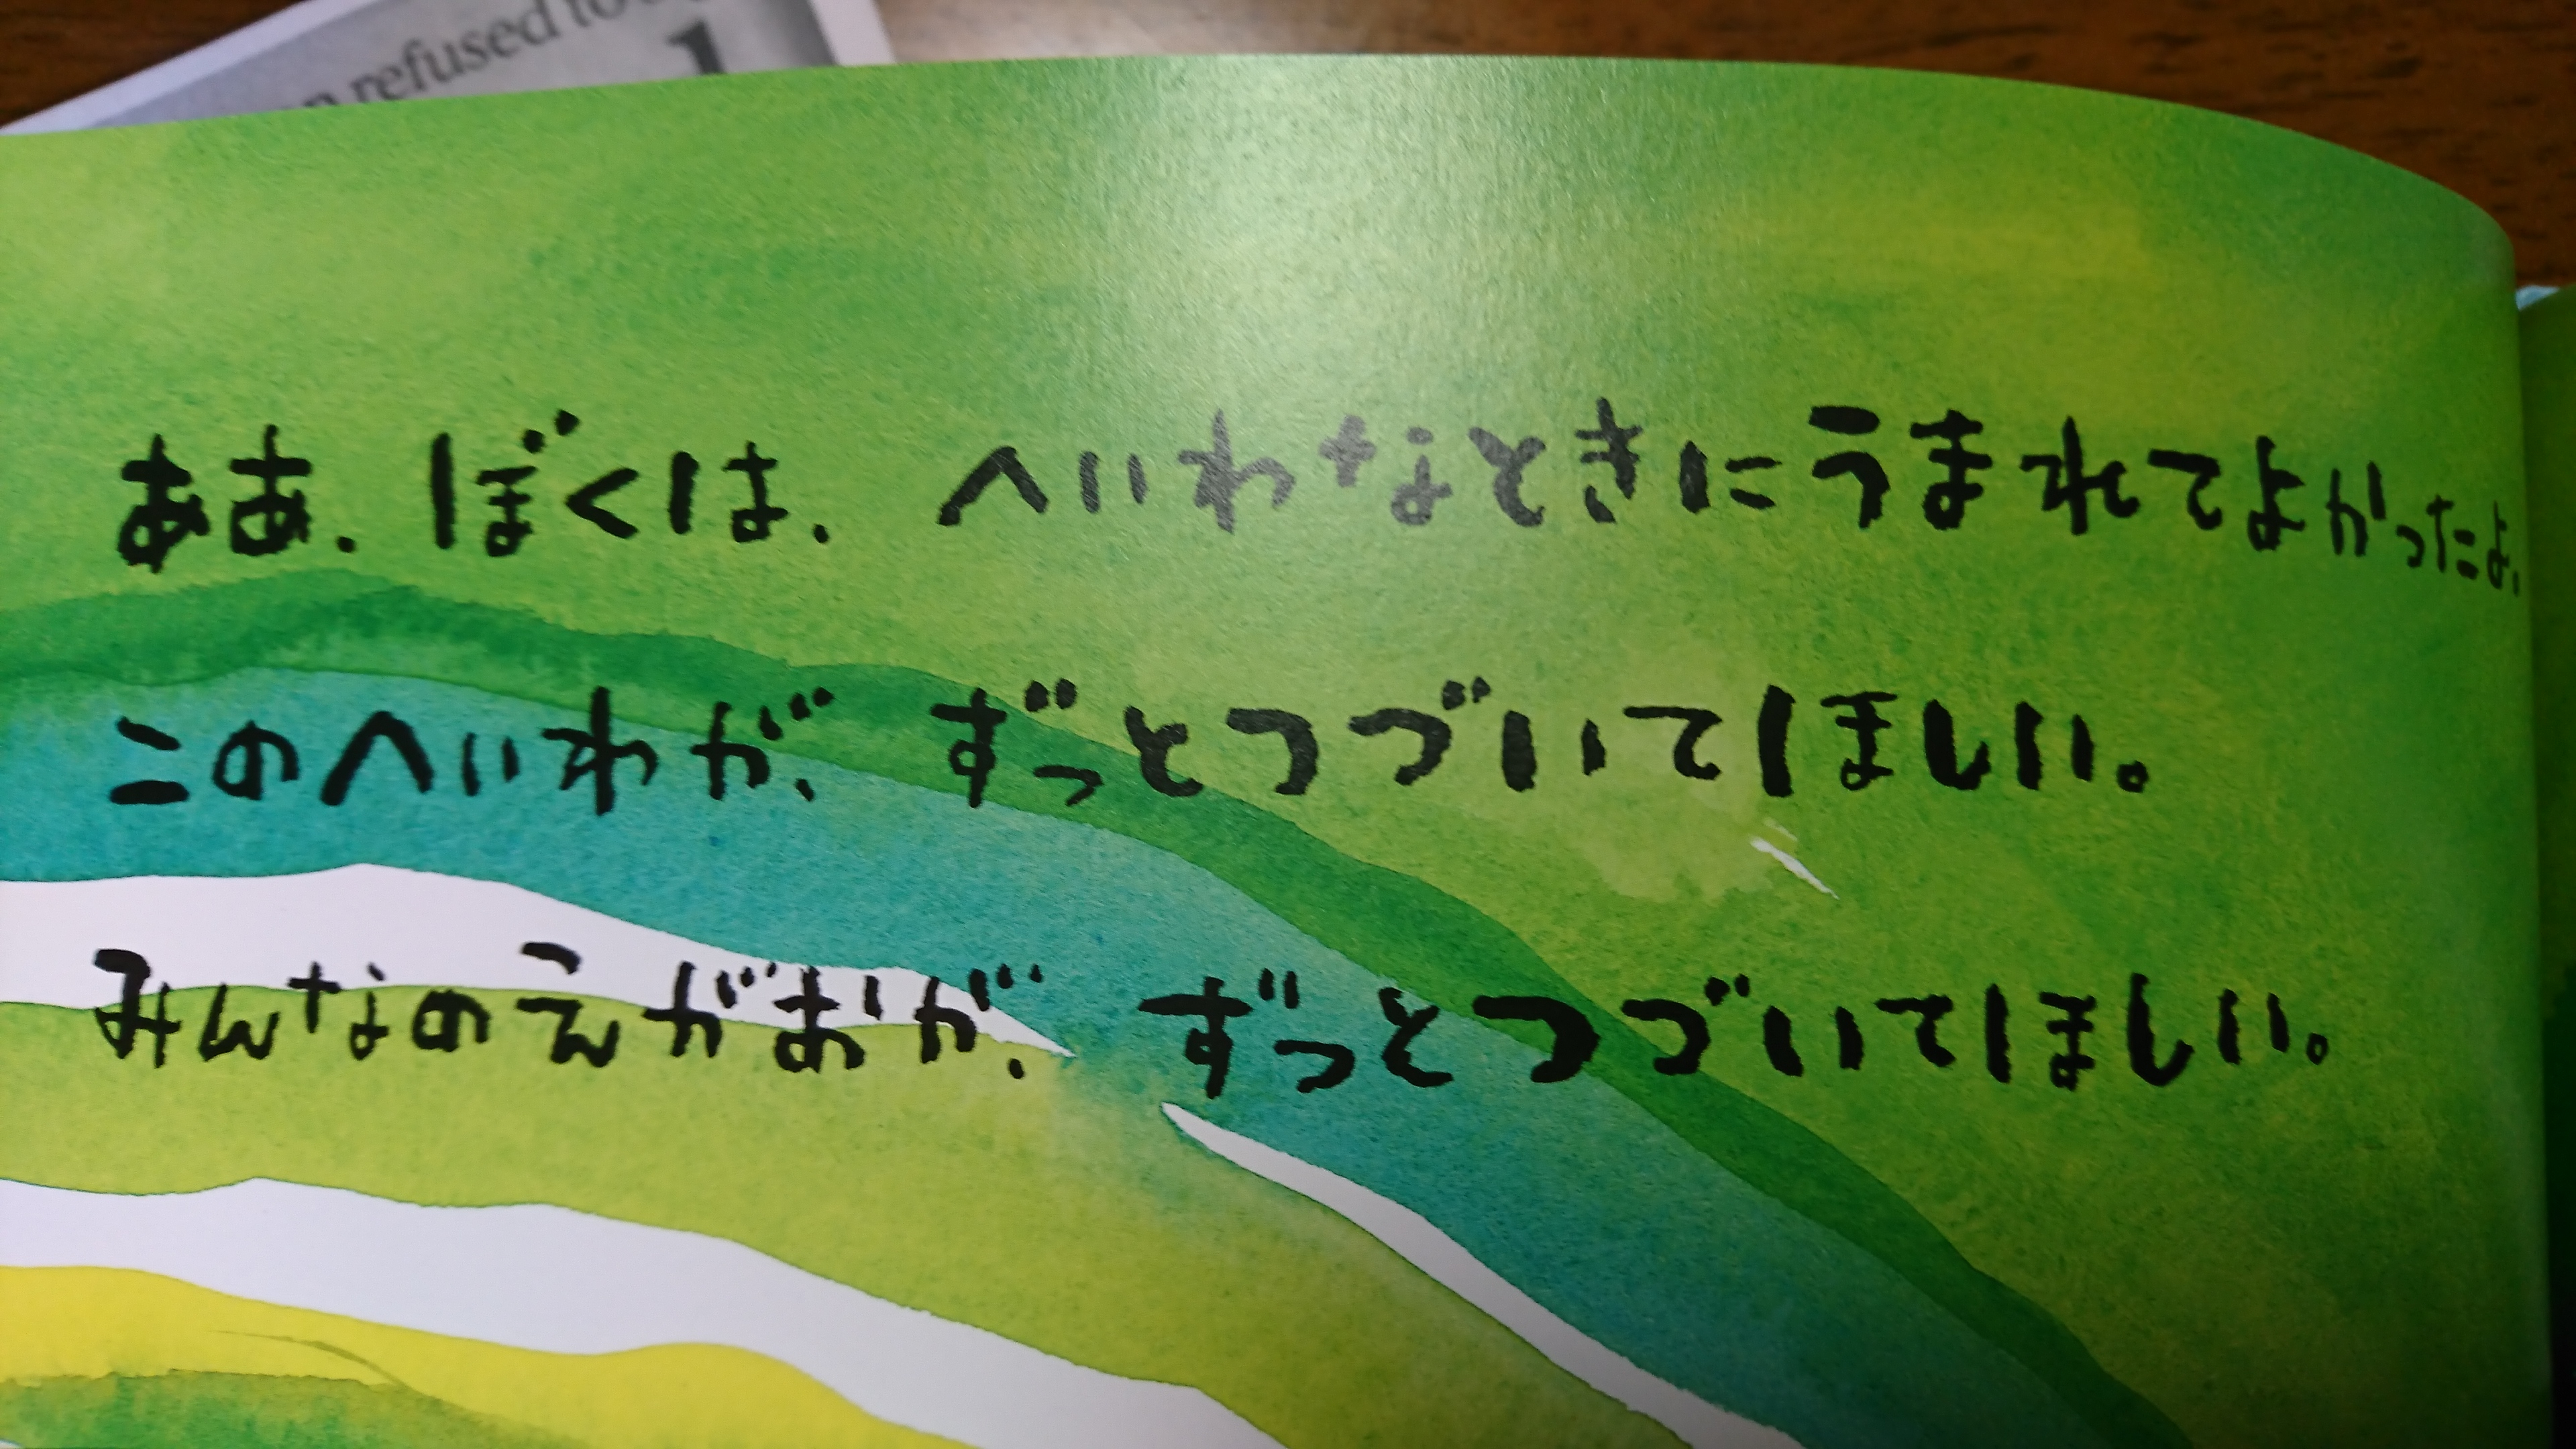 n refused to
ああ、ぼくは、 へいわなときにうまれてよかったよ、
このへいわが、 ずっとつづいてほしい。
みんなのえがおが、 ずっとつづいてほしい。